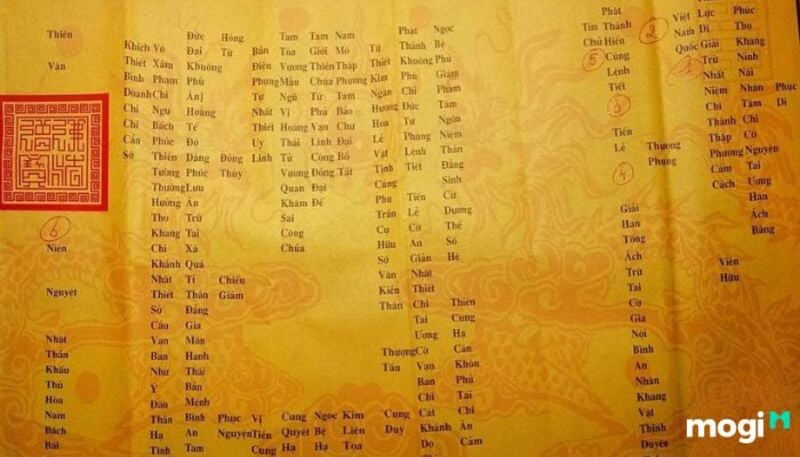 Phuc Di
Phúc Thọ Khang Ninh Nãi Nhân Tâm Cờ Nguyện Tai Ương Hạn Ách Bằng
Lực Di Giải Trừ Nhất Niệm Chí Thành Thập Phương Cảm Cách Viên Hữu
Việt Nam Quốc
Thượng Phụng
Phật Thánh Hiền Cúng Lệnh Tiết Tiến Lễ
Giải Hạn Tống Ách Trừ Tai Cờ Gia Nội Bình An Nhân Khang Vật Thịnh Duyên
Tín Chủ
2
1
5
3
4
Ngọc Bệ Phủ Giám Phàm Tâm Ngôn Niệm Thân Đăng Sinh Cử Dương Thế Số Hệ Thiên Cung Hạ Cản Khôn Phủ Tải Chi Án Cảm
Phật Thánh Khuông Phù Chỉ Đức Tự Phùng Lệnh Tiết Tiến Lễ Cờ An Giản Nhất Thiết Chi Tai Ương Cờ Vạn Ban Chi Cát Khánh Do
Từ Thiết Kim Ngân Hương Hoa Lễ Vật Tịnh Cúng Phu Trần Cu Hữu Sớ Văn Kiến Thân Thượng Tấu Cung Duy
Nam Mô Thập Phương Tam Bảo Chư Đại Bồ Tát Kim Liên Tọa
Tam Giới Thiên Chúa Tứ Phủ Vạn Linh Công Đồng Đại Đế Ngọc Bệ Hạ
Tam Tòa Vương Mẫu Ngũ Vị Hoàng Thái Tử Vương Quan Khâm Sai Công Chúa Cung Quyết Hạ
Bản Điện Phụng Nhất Thiết Uy Linh Vị Tiền Cung
Hồng Từ Đông Thùy Chiếu Giám Phục Nguyện
Đức Đại Khuông Phù Ân] Hoằng Tế Độ Dáng Phúc Lưu Ân Trừ Tai Xá Quá Tỉ Thân Đảng Gia Môn Hanh Thái Bản Mệnh Bình An Tam
Vô Xâm Phạm Chí Ngu Bách Phúc Thiên Tường Thường Hưởng Thọ Khang Chi Khánh Nhất Thiết Sở Cầu Vạn Ban Như Ý Đàn Thần Hạ Tinh
Khích Thiết Bình Doanh Chí Chí Cầu Sở
6
Thiên Vân Niên Nguyệt Nhật Thần Khấu Thủ Hòa Nam Bách Bái
mogi